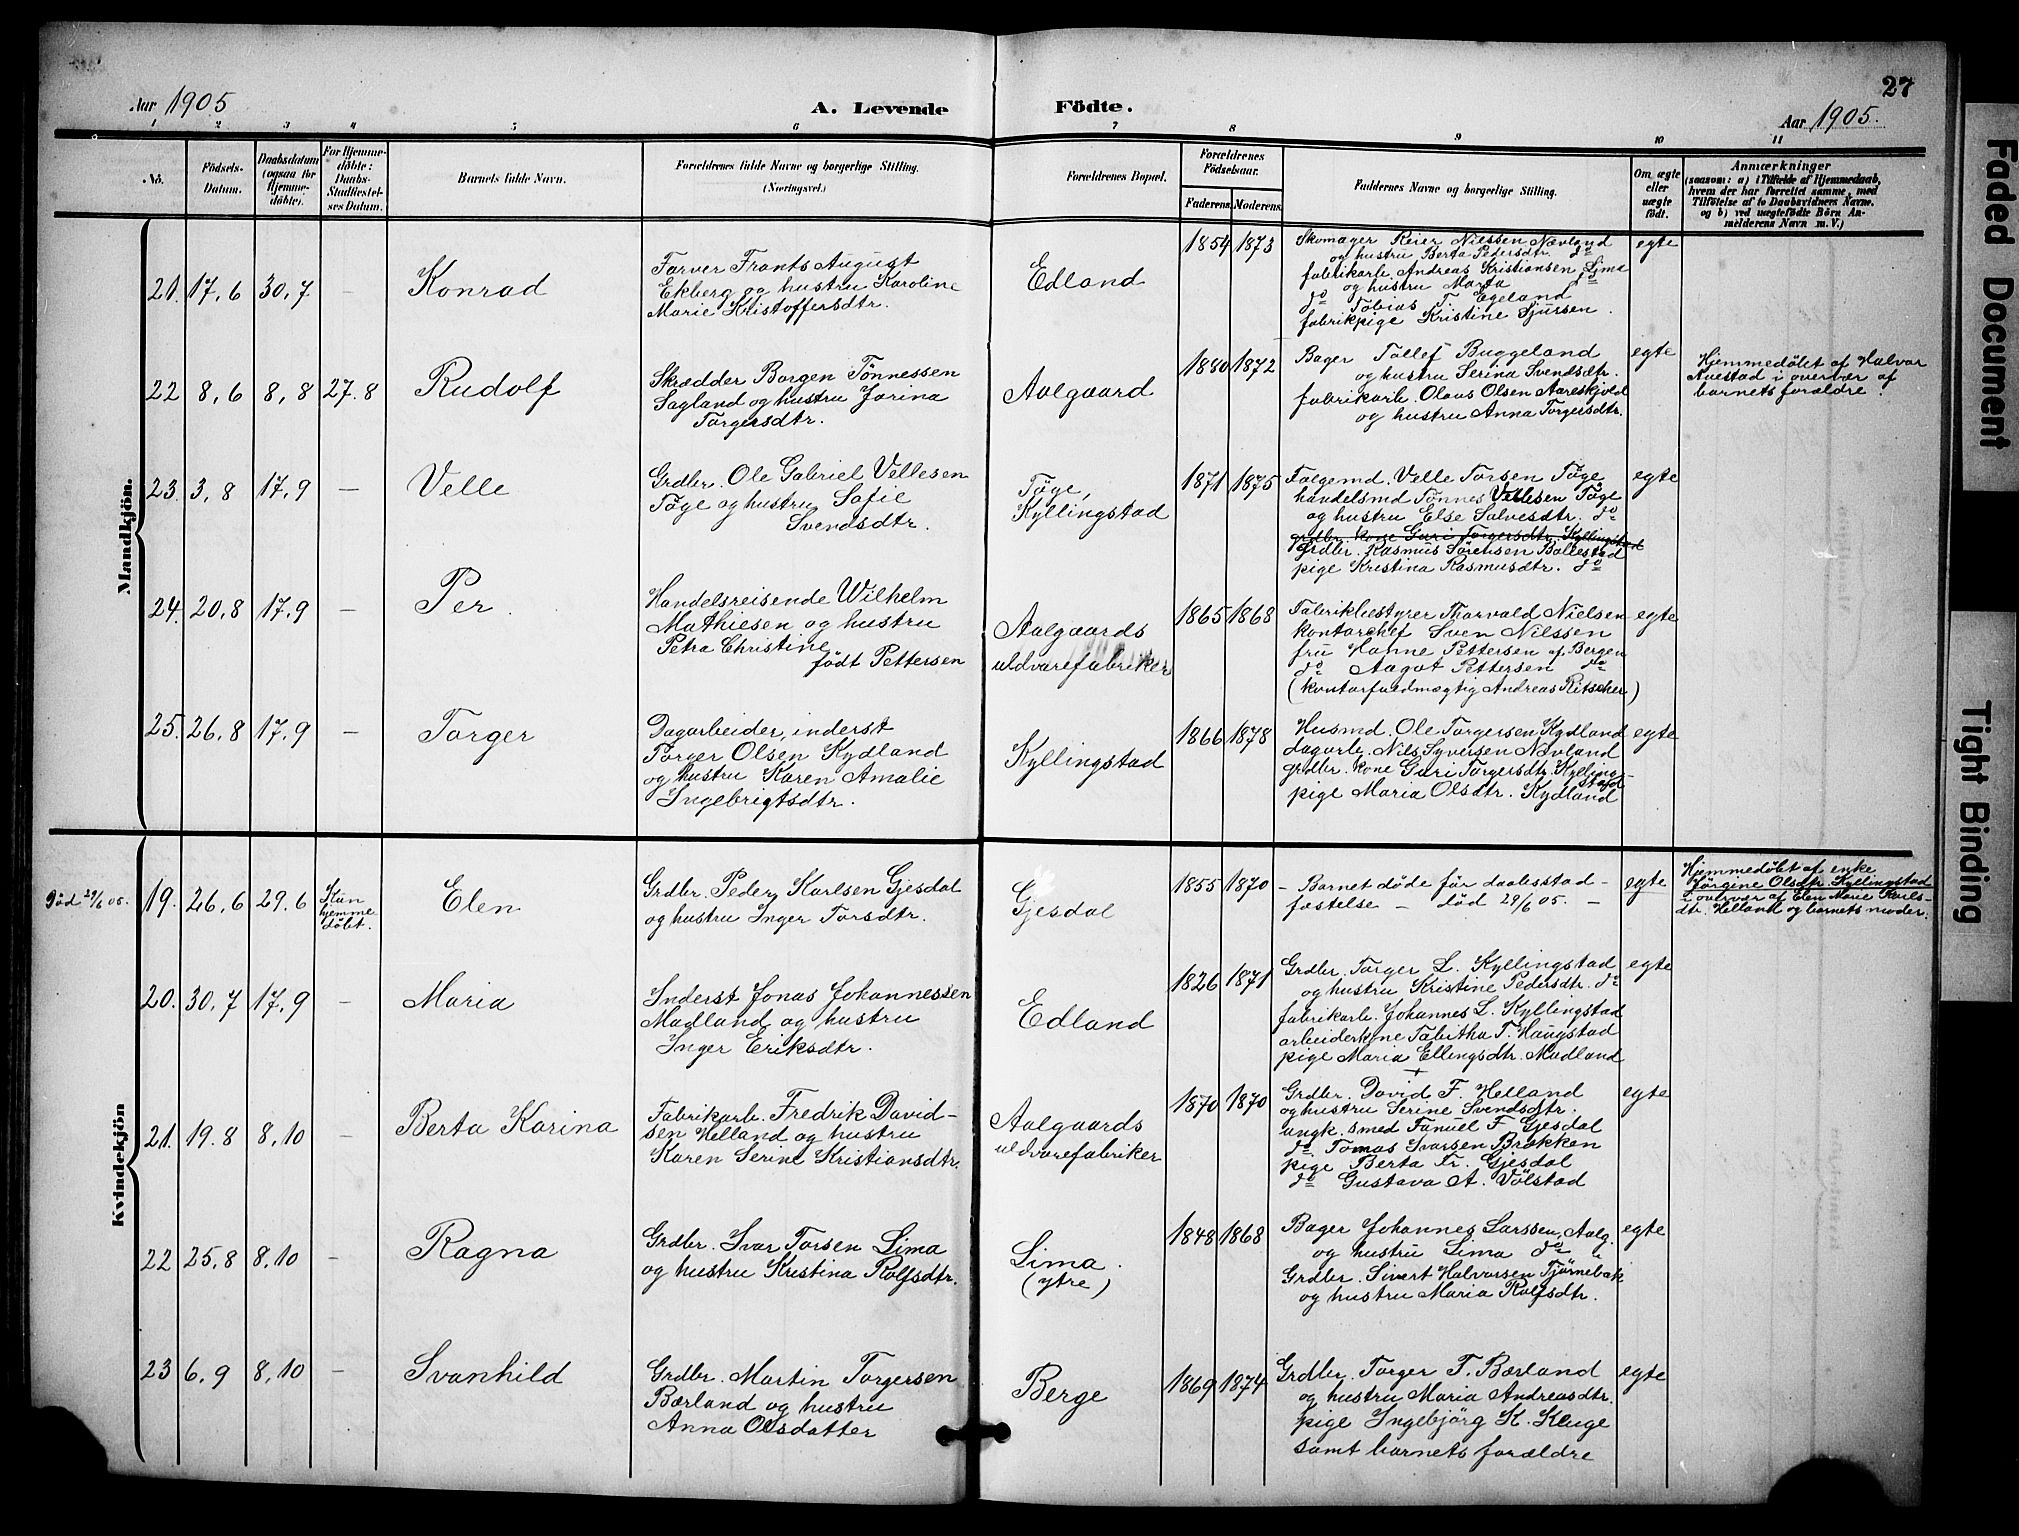 27
Aar 1905
A. Levende Födte.
Aar 1905.
1 2 3 4 5 6 7 8 9 10 11
No.
Födsels-Datum.
Daabsdatum (ogsaa for Hjemme-döbte).
For Hjemme-döbte: Daabs-Stadfæstel-ses Datum.
Barnets fulde Navn.
Forældrenes fulde Navne og borgerlige Stilling.
(Næringsvei.)
Forældrenes Bopæl.
Forældrenes Födselsaar.
Faderens. Moderens.
Faddernes Navne og borgerlige Stilling.
Om ægte eller uægte födt.
Anmærkninger
(saasom: a) i Tilfælde af Hjemmedaab,
hvem der har forrettet samme, med
Tilföielse af to Daabsvidners Navne.
og b) ved uægtefödte Börn An-
melderens Navn m. V.)
Mandkjön.
21. 17,6 30,7 — Konrad
Farver Frants August
Ekberg og hustru Karoline
Marie Kristoffersdtr.
Edland
1854 1873
Skomager Reier Nilssen Nævland
og hustru Berta Pedersdtr. do
fabrikarb. Andreas Kristiansen Lima
og hustru Marta do
do Tobias T. Egeland
fabrikpige Kristine Sjurssen.
egte
22 8,6 8,8 27.8 Rudolf
Skrædder Borgen Tönnessen
Sagland og hustru Jorina
Torgersdtr.
Aalgaard
1880 1872
Bager Tollef Buggeland
og hustru Serina Svendsdtr.
fabrikarb. Olaus Olsen Aareskjold
og hustru Anna Torgersdtr.
egte
Hjemmedöbt af Halvar
Nuestad i overvær af
barnets forældre.
23. 3,8 17,9 — Velle
Grdbr. Ole Gabriel Vellesen
Töge og hustru Sofie
Svendsdtr.
Töge,
Kyllingstad
1871 1875
Folgemd. Velle Torsen Töge
handelsmd Tönnes Vellesen Töge
og hustru Else Salvesdtr. do
grdbr. kone Guri Torgersdtr. Kyllingstad
Grdbr. Rasmus Sörensen Bollestad
pige Kristina Rasmusdtr. do
egte
24. 20,8 17,9 — Per.
Handelsreisende Wilhelm
Mathiesen og hustru
Petra Christine
födt Pettersen
Aalgaards
uldvarefabriker
1865 1868
Fabrikbestyrer Thorvald Nielsen
kontorchef Sven Nilssen
fru Hanne Pettersen af Bergen
do Aagot Pettersen do
(kontorfuldmægtig Andreas Ritscher)
egte
25. 26,8 17,9 — Torger
Dagarbeider, inderst
Torger Olsen Kydland
og hustru Karen Amalie
Ingebrigtsdtr.
Kyllingstad
1866 1878
Husmd. Ole Torgersen Kydland
dagarb. Nils Syversen Nævland
grdbr. kone Guri Torgersdtr. Kylling-
stad
pige Maria Olsdtr. Kydland
egte
Kvindekjön
Död 29/6 05.
19. 26,6 29.6 Kun
hjemme
döbt.
Elen
Grdbr. Peder Karlsen Gjesdal
og hustru Inger Torsdtr.
Gjesdal
1855 1870
– Barnet döde för daabsstad–
fæstelse – död 29/6 05. –
egte
Hjemmedöbt af enke
Jörgine Olsdtr. Kyllingstad
i overvær af Elen Marie Karls-
dtr. Helland og barnets moder.
20. 30,7 17,9 – Maria
Inderst Jonas Johannessen
Madland og hustru
Inger Eriksdtr.
Edland
1826 1871
Grdbr. Torger L. Kyllingstad
og hustru Kristine Pedersdtr. do
fabrikarb. Johannes L. Kyllingstad
arbeiderkone Tabitha T. Haugstad
pige Maria Ellingsdtr. Madland
egte
21. 19.8 8,10 – Berta Karina
Fabrikarb. Fredrik David-
sen Helland og hustru
Karen Serine Kristiansdtr.
Aalgaards
uldvarefabriker
1870 1870
Grdbr. David F. Helland
og hustru Serine Svendsdtr.
ungk. smed Fanuel F. Gjesdal
do Tomas Ivarsen Brækken
pige Berta Fr. Gjesdal
do Gustava A. Völstad
egte
22 25,8 8,10 – Ragna
Grdbr. Ivar Torsen Lima
og hustru Kristina Rolfsdtr.
Lima.
(ytre)
1848 1868
Bager Johannes Larssen, Aalg.
og hustru Lima do
Grdbr. Sivert Halvorsen Tjörnebak
og hustru Maria Rolfsdtr.
egte
23 6,9 8,10 – Svanhild
Grdbr. Martin Torgersen
Bærland og hustru
Anna Olsdatter
Berge
1869 1874
Grdbr. Torger T. Bærland
og hustru Maria Andreasdtr.
pige Ingebjörg K. Kluge
samt barnets forældre
egte
Faded Document
Tight Binding